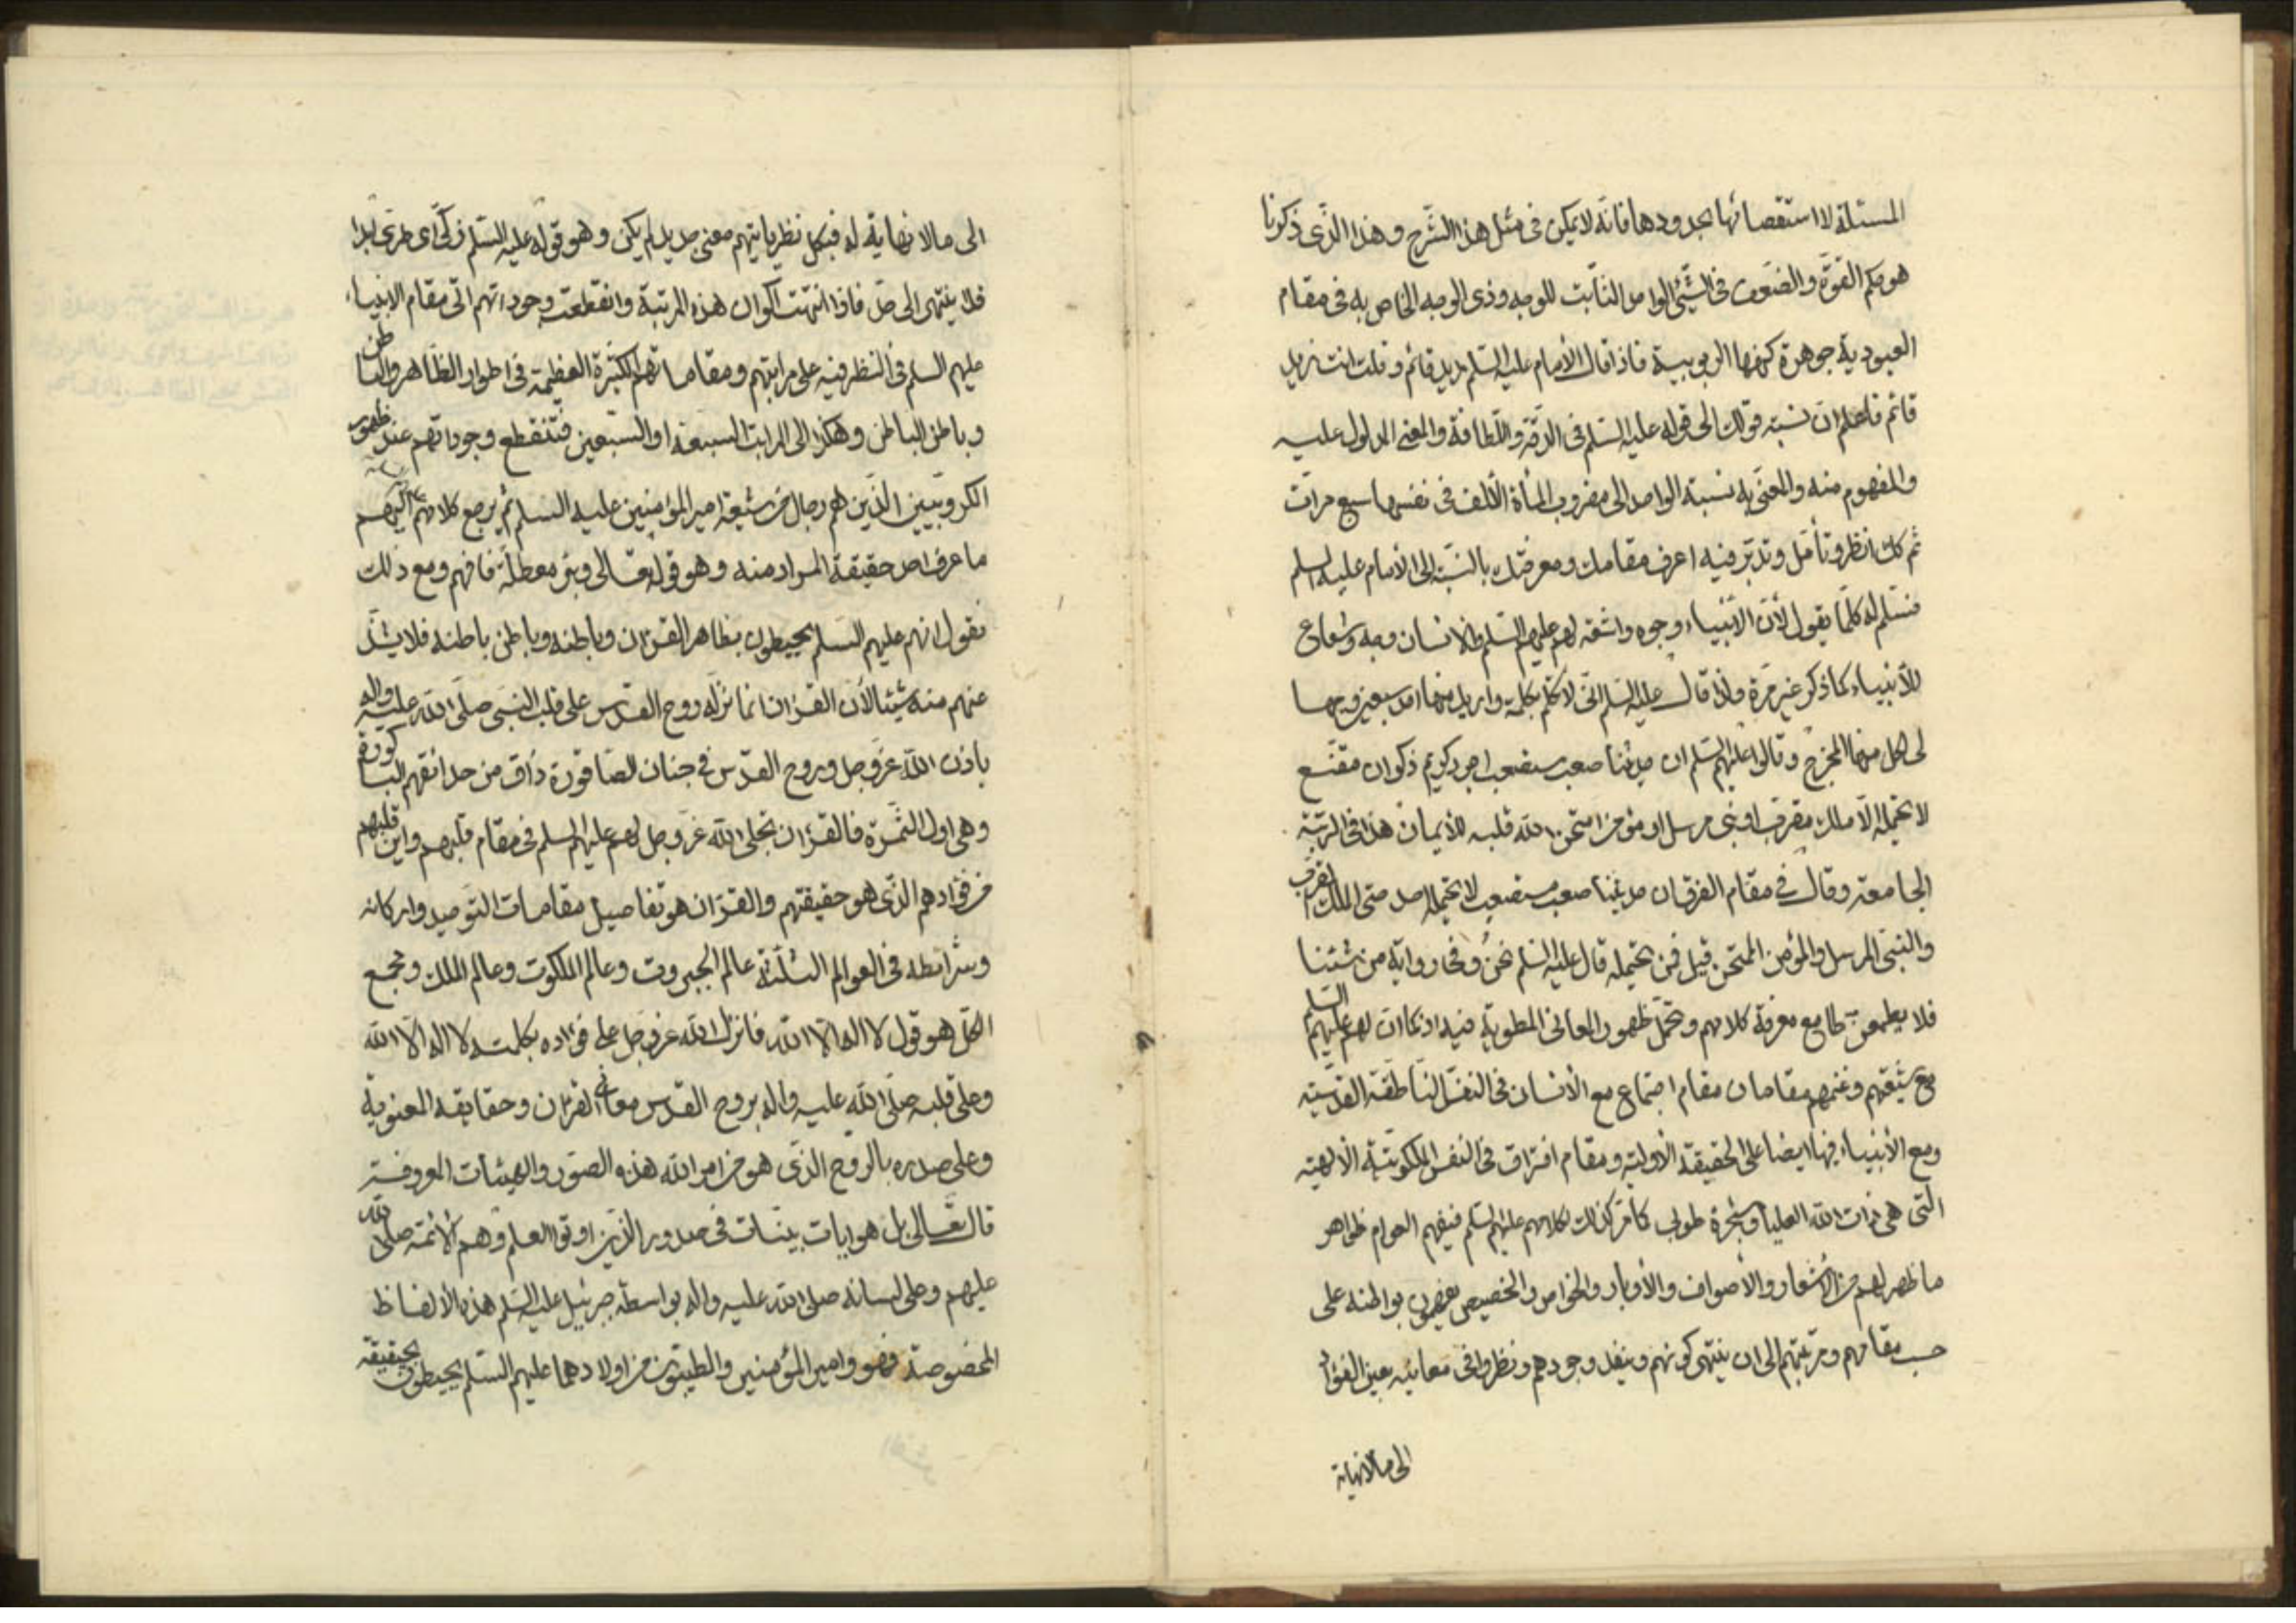 المسئلة لا استقصائها بحدودها فانه لا يمكن فى مثل هذا الشرح وهذا الذى ذكرنا
هو حكم القوة والضعف فى الشئ الواحد الثابت للوجه وذى الوجه الخاص به فى مقام
العبودية جوهرة كنهها الربوبية فاذا قال الامام عليه السلم زيد قائم وقلت انت زيد
قائم فاعلم ان نسبة قولك الى قوله عليه السلم فى الدقة واللطافة والمعنى المدلول عليه
والمفهوم منه والمعنى به نسبة الواحد الى مضروب المأة الألف فى نفسها سبع مرات
ثم كك انظر وتأمل وتدبر فيه اعرف مقامك ومعرفتك بالنسبة الى الأمام عليه السلم
فتسلم له كلما يقول لأن الأنبياء وجوه واشعة لهم عليهم السلم والانسان وجه وشعاع
للأنبياء كما ذكر غير مرة ولذا قال عليه السلم انى لا تكلم بكلمة واريد منها احد سبعين وجها
لى لكل منها المخرج وقالوا عليهم السلم ان حديثنا صعب مستصعب اجرد كريم ذكوان مقنع
لا يحتمله الا ملك مقرب او نبى مرسل او مؤمن امتحن الله قلبه للأيمان هذا فى الرتبة
الجامعة وقال فى مقام الفرقان حديثنا صعب مستصعب لا يحتمله احد حتى الملك المقرب
والنبى المرسل والمؤمن الممتحن قيل فمن يحتمله قال عليه السلم نحن وفى رواية من شئنا
فلا يطمعن طامع معرفة كلامهم وتحمل ظهور المعانى المطوية فيه اذ كما ان لهم عليهم السلم
مع شيعتهم وغنمهم مقامان مقام اجتماع مع الأنسان فى النفس الناطقة القدسية
ومع الأنبياء فيها ايضا على الحقيقة الأولية ومقام افتراق فى النفس الملكوتية الألهية
التى هى ذات الله العليا وشجرة طوبى كما مر كذلك لكلامهم عليهم السلم فيفهم العوام ظواهر
ما ظهر لهم من الأشعار والأصواف والأوبار والخواص والخصيصى يفهمون بواطنه على
حسب مقامهم ومرتبتهم الى ان ينتهى كونهم وينفد وجودهم ونظروا فى معانيه بعين الفؤاد
الى ما لا نهاية
الى ما لا نهاية له فبكل نظر يأتيهم معنى جديد لم يكن وهو قوله عليه السلم زكى اى طرى ابدا
فلا ينتهى الى حد فاذا انتهت اكوان هذه المرتبة وانقطعت وجوداتهم اتى مقام الانبياء
عليهم السلم فى النظر فيه على مراتبهم ومقاماتهم الكثيرة العظيمة فى اطوار الظاهر والباطن
وباطن الباطن وهكذا الى المراتب السبعة او السبعين فتنقطع وجوداتهم عند ظهور
الكروبيين الذين هم رجال من شيعة امير المؤمنين عليه السلم ثم يرجع كلامهم اليهم
ما عرف احد حقيقة المراد منه وهو قوله تعالى وبئر معطلة فافهم ومع ذلك
نقول انهم عليهم السلم يحيطون بظاهر القران وباطنه وباطن باطنه فلا يشذ
عنهم منه شيئا لأن القران انما نزله روح القدس على قلب النبى صلى الله عليه واله
باذن الله عز وجل وروح القدس فى جنان الصاقورة ذاق من حدائقهم الباكورة
وهى اول الثمرة فالقران تجلى الله عز وجل لهم عليهم السلم فى مقام قلبهم واين قلبهم
من فؤادهم الذى هو حقيقتهم والقران هو تفاصيل مقامات التوحيد واركانه
وشرائطه فى العوالم الثلثة عالم الجبروت وعالم الملكوت وعالم الملك ومجمع
الكل هو قول لا اله الا الله فانزل الله عز وجل على فؤاده بكلمة لا اله الا الله
وعلى قلبه صلى الله عليه واله بروح القدس معانى القران وحقايقه المعنوية
وعلى صدره بالروح الذى هو من امر الله هذه الصور والهيئات المعروفة
قال تعالى بل هو ايات بينات فى صدور الذين اوتوا العلم وهم الأئمة صلى الله
عليهم وعلى لسانه صلى الله عليه واله بواسطة جبرئيل عليه السلم هذه الألفاظ
المخصوصة فهو وامير المؤمنين والطيبون من اولادهما عليهم السلم يحيطون بحقيقة